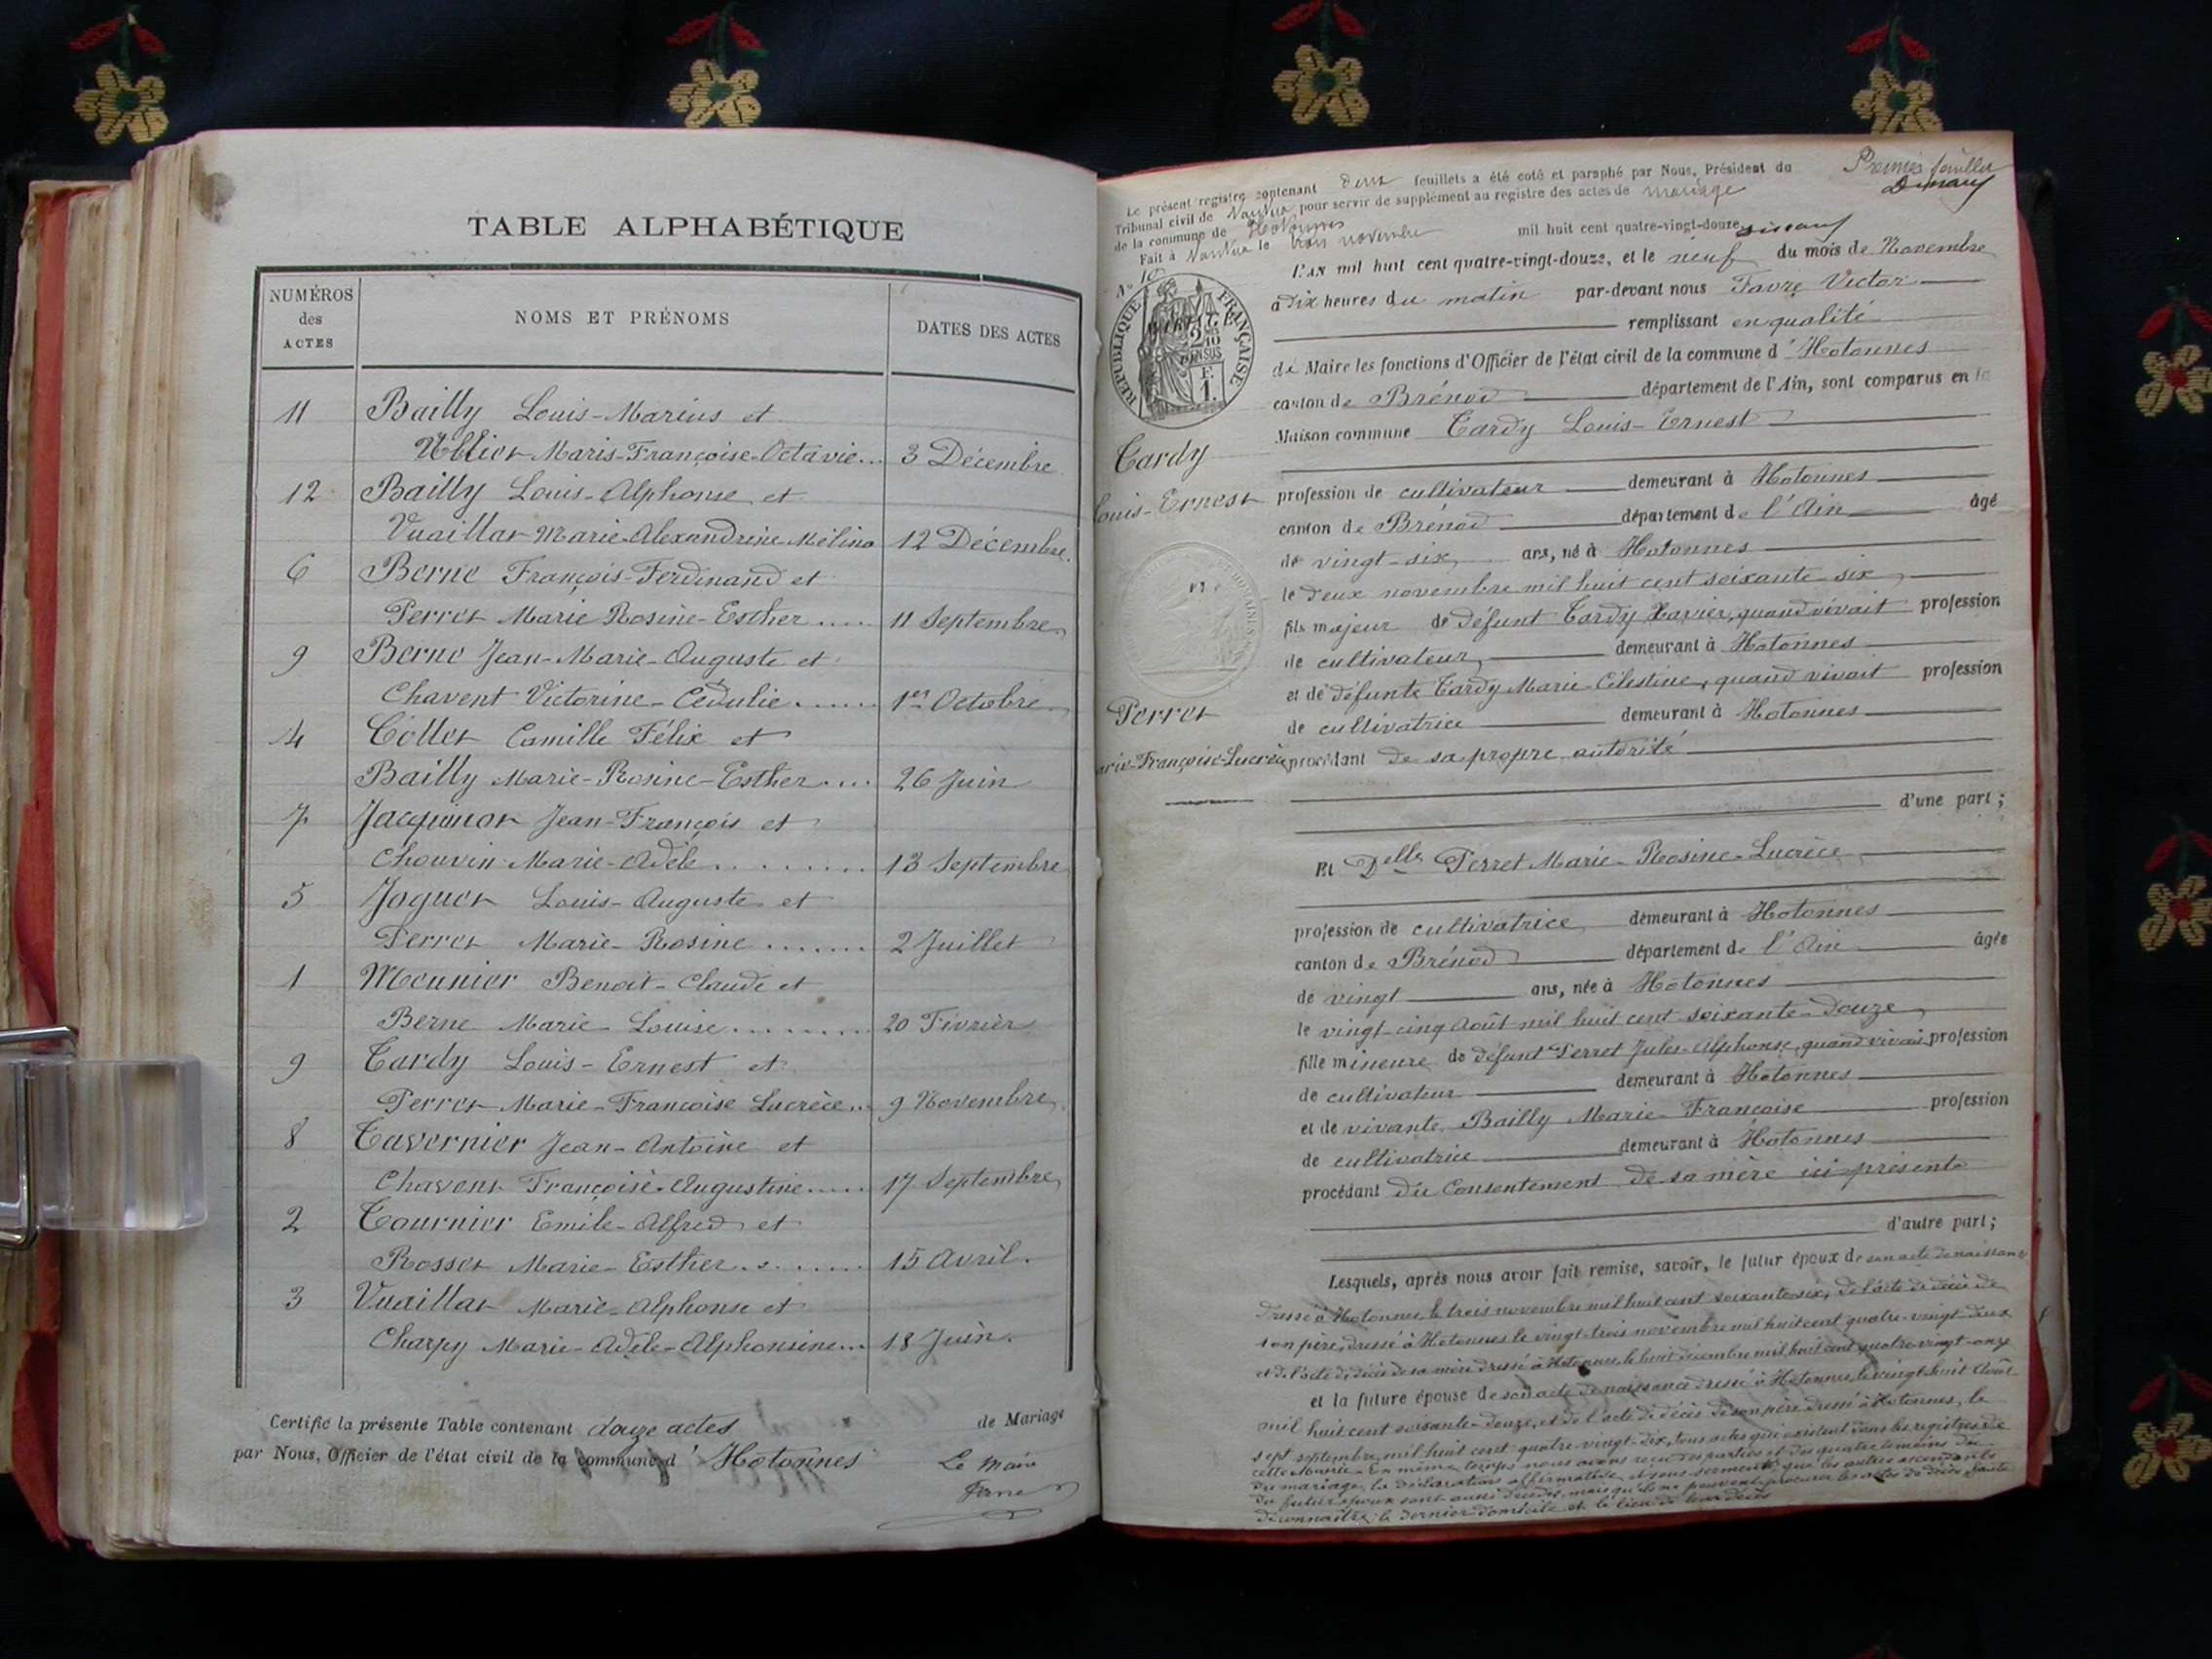 TABLE ALPHABÉTIQUE
NUMÉROS des ACTES
NOMS ET PRÉNOMS
DATES DES ACTES
11 Bailly Louis-Marius et
Marie-Françoise-Octavie... 3 Décembre
12 Bailly Louis-Alphonse et
Vuaillat Marie-Alexandrine-Mélina 12 Décembre.
6 Berne François-Ferdinand et
Perret Marie Rosine-Esther ..... 11 Septembre
9 Berne Jean-Marie-Auguste et
Chavent Victorine-Cédulie ...... 1er Octobre
4 Collet Camille Félix et
Bailly Marie-Rosine-Esther .... 26 Juin
7 Jacquinot Jean-François et
Chouvin Marie-Adèle ......... 13 Septembre
5 Joguet Louis-Auguste et
Perret Marie-Rosine ....... 2 Juillet
1 Meunier Benoit-Claude et
Berne Marie-Louise ......... 20 Février
9 Tardy Louis-Ernest et
Perret Marie-Françoise Lucrèce... 9 Novembre
8 Tavernier Jean-Antoine et
Chavent Françoise-Augustine ..... 17 Septembre
2 Tournier Emile-Alfred et
Rosset Marie-Esther ........ 15 Avril.
3 Vuaillat Marie-Alphonse et
Charpy Marie-Adèle-Alphonsine... 18 Juin.
Certifié la présente Table contenant douze actes de Mariage
par Nous, Officier de l'état civil de la commune d'Hotonnes
Le Maire
Premier feuillet
Le présent registre contenant deux feuillets a été coté et paraphé par Nous, Président du
Tribunal civil de Nantua pour servir de supplément au registre des actes de mariage
de la commune de Hotonnes
Fait à Nantua le trois novembre mil huit cent quatre-vingt-douze
N° 10
RÉPUBLIQUE FRANÇAISE
2/10 EN SUS
F. 1.
L'AN mil huit cent quatre-vingt-douze, et le neuf du mois de Novembre
à dix heures du matin par-devant nous Favre Victor
remplissant en qualité
de Maire les fonctions d'Officier de l'état civil de la commune d'Hotonnes
canton de Brénod département de l'Ain, sont comparus en la
Maison commune Tardy Louis-Ernest
Tardy
Louis-Ernest
profession de cultivateur demeurant à Hotonnes
canton de Brénod département de l'Ain âgé
de vingt-six ans, né à Hotonnes
le deux novembre mil huit cent soixante-six
fils majeur de défunt Tardy Xavier, quand vivait profession
de cultivateur demeurant à Hotonnes
et de défunte Tardy Marie-Célestine, quand vivait profession
Perret
de cultivatrice demeurant à Hotonnes
Marie-Françoise-Lucrèce
procédant de sa propre autorité
d'une part;
Et Delle Perret Marie-Rosine-Lucrèce
profession de cultivatrice demeurant à Hotonnes
canton de Brénod département de l'Ain âgée
de vingt ans, née à Hotonnes
le vingt-cinq Août mil huit cent soixante-douze
fille mineure de défunt Perret Jules-Alphonse, quand vivait profession
de cultivateur demeurant à Hotonnes
et de vivante Bailly Marie-Françoise profession
de cultivatrice demeurant à Hotonnes
procédant du consentement de sa mère ici présente
d'autre part;
Lesquels, après nous avoir fait remise, savoir, le futur époux de son acte de naissance
dressé à Hotonnes le trois novembre mil huit cent soixante-six, de l'acte de décès de
son père, dressé à Hotonnes le vingt-trois novembre mil huit cent quatre-vingt-deux
et de l'acte de décès de sa mère dressé à Hotonnes, le huit décembre mil huit cent quatre-vingt-onze
et la future épouse de son acte de naissance dressé à Hotonnes, le vingt-huit Août
mil huit cent soixante-douze, et de l'acte de décès de son père dressé à Hotonnes, le
sept septembre mil huit cent quatre-vingt-dix, tous actes qui existent dans les registres de
cette Mairie. En même temps nous avons reçu des parties et des quatre témoins du
du mariage, la déclaration affirmative et sous serment que les autres ascendants
du futur époux sont aussi décédés, mais qu'ils ne peuvent procurer les actes de décès faute
de connaître le dernier domicile et le lieu de leur décès